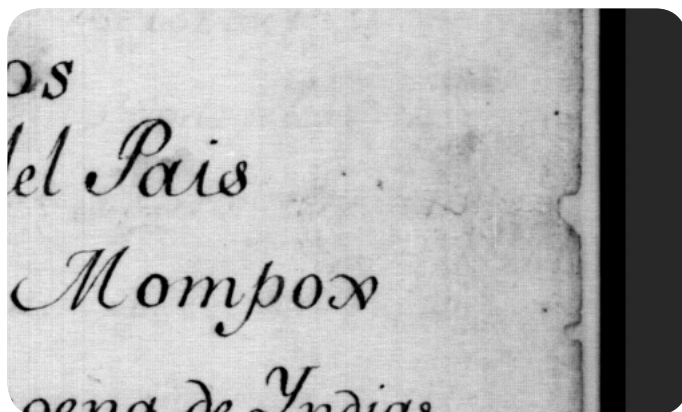 os
del Pais
Mompox
gena de Yndias